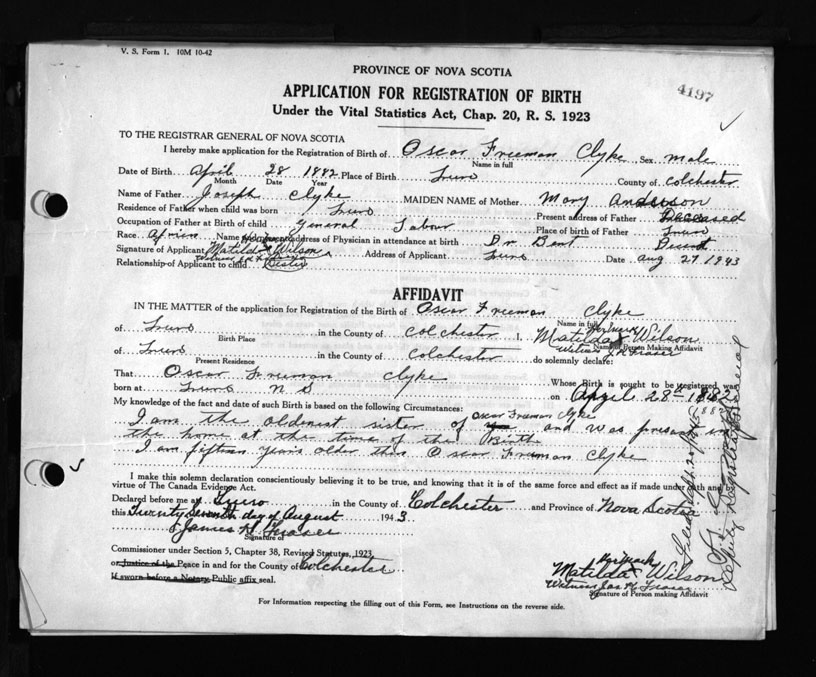 V. S. Form 1. 10M 10-42
PROVINCE OF NOVA SCOTIA
4197
APPLICATION FOR REGISTRATION OF BIRTH
Under the Vital Statistics Act, Chap. 20, R. S. 1923
TO THE REGISTRAR GENERAL OF NOVA SCOTIA
I hereby make application for the Registration of Birth of Oscar Freeman Clyke, Sex male
Name in full
Date of Birth April 28 1882 Place of Birth Truro County of Colchester
Month Date Year
Name of Father Joseph Clyke MAIDEN NAME of Mother Mary Anderson
Residence of Father when child was born Truro Present address of Father Deceased
Occupation of Father at Birth of child general Labour Place of birth of Father Truro
Race African Name and address of Physician in attendance at birth Dr Bent
Signature of Applicant Matilda X Wilson Address of Applicant Truro Date Aug 27 1943
Relationship of Applicant to child Sister
AFFIDAVIT
IN THE MATTER of the application for Registration of the Birth of Oscar Freeman Clyke
Name in full
of Truro in the County of Colchester I, Matilda X Wilson
Birth Place Name of Person Making Affidavit
Witness J H Fraser
of Truro in the County of Colchester do solemnly declare:
Present Residence
That Oscar Freeman Clyke Whose Birth is sought to be registered was
born at Truro N S on April 28th 1882
My knowledge of the fact and date of such Birth is based on the following Circumstances:
I am the oldenist sister of Oscar Freeman Clyke and was present in
the home at the time of the Birth
I am fifteen years older than Oscar Freeman Clyke
I make this solemn declaration conscientiously believing it to be true, and knowing that it is of the same force and effect as if made under oath and by
virtue of The Canada Evidence Act.
Declared before me at Truro in the County of Colchester and Province of Nova Scotia
this Twenty Seventh day of August 1943
James H Fraser
Signature of
Commissioner under Section 5, Chapter 38, Revised Statutes, 1923
or Justice of the Peace in and for the County of Colchester
If sworn before a Notary Public affix seal.
Her mark
Matilda X Wilson
Witness Jas H Fraser
Signature of Person making Affidavit
For Information respecting the filling out of this Form, see Instructions on the reverse side.